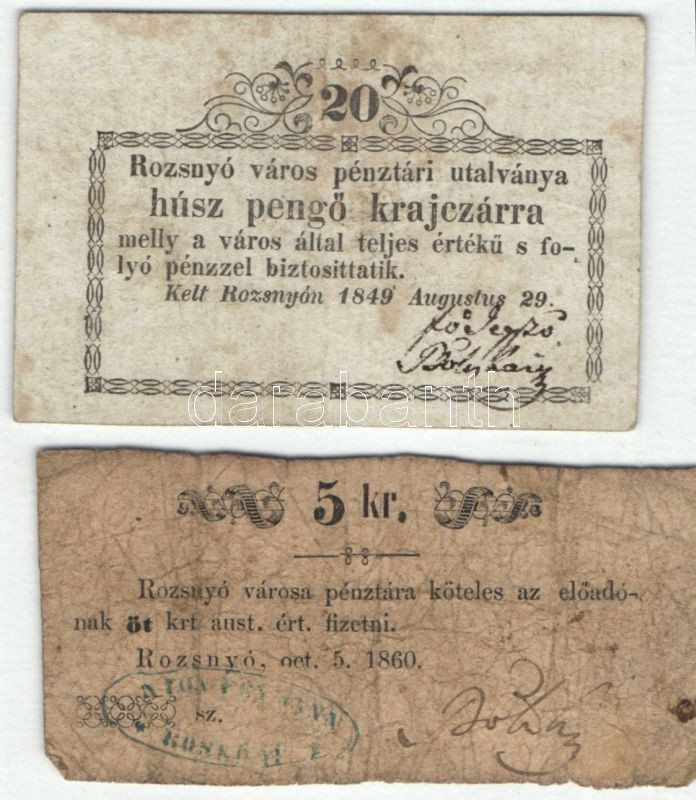 20
Rozsnyó város pénztári utalványa
húsz pengő krajczárra
melly a város által teljes értékű s fo-
lyó pénzzel biztosittatik.
Kelt Rozsnyón 1849 Augustus 29.
darabanth
5 kr.
Rozsnyó városa pénztára köteles az előadó-
nak öt krt aust. ért. fizetni.
Rozsnyó, oct. 5. 1860.
sz.